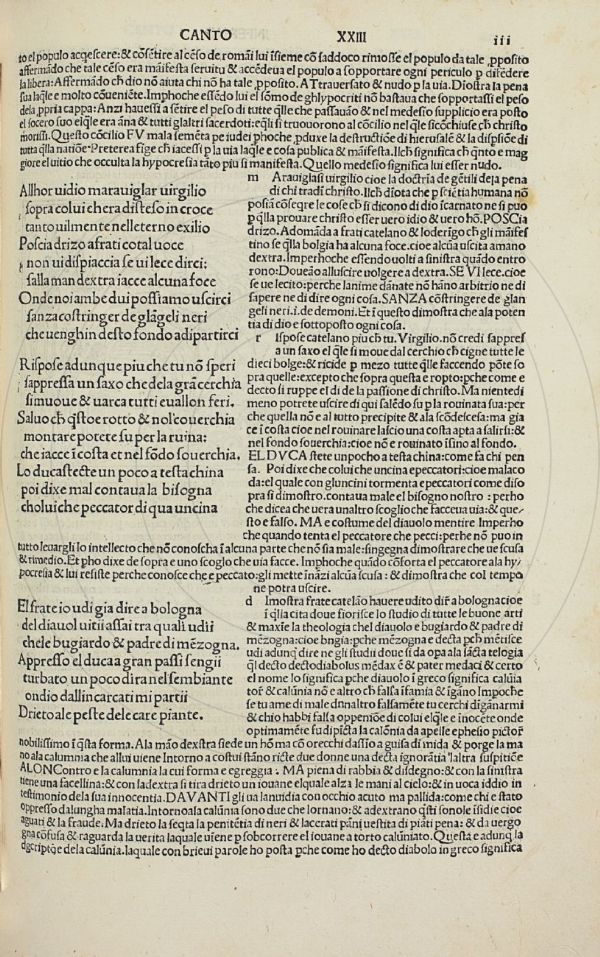 CANTO XXIII iii
to el populo acqescere: & cōsētire al cēso de romāi lui īsieme cō saddoco rimosse el populo da tale ꝓposito
affermādo che tale cēso era māifesta seruitu & accēdeua el popolo a sopportare ogni periculo p difēdere
la libera: Affermādo ch dio nō aiuta chi nō ha tale ꝓposito. ATtrauersato & nudo p la uia. Diostra la pena
sua laqle e molto cōueniēte. Imphoche essēdo lui el sōmo de ghlypocriti nō bastaua che sopportassi el peso
dela ꝓpria cappa: Anzi hauessi a sētire el peso di tutte qlle che passauāo & nel medesimo supplicio era posto
el socero suo elqle era āna & tutti glaltri sacerdoti: eqli si truouorono al cōcilio nel qle sicōchiuse ch christo
morissi. Questo cōcilio FV mala semēta pe iudei phoche ꝓduxe la destructiōe di hierusalē & la dispsiōe di
tutta qlla natiōe. Preterea fige ch iacessi p la uia laqle e cosa publica & māifesta. Ilch significa ch qnto e mag
giore el uitio che occulta la hypocresia tāto piu si manifesta. Quello medesīo significa lui esser nudo.
Allhor uidio marauiglar uirgilio
sopra colui chera disteso in croce
tanto uilmente nelleterno exilio
Poscia drizo a frati cotal uoce
non ui dispiaccia se ui lece dirci:
salla man dextra iacce alcuna foce
Onde noi ambedui possiamo uscirci
sanza costringer de glāgeli neri
che uenghin desto fondo adipartirci
m Arauiglasi uirgilio cioe la doctria de gētili dela pena
di chi tradi christo. Ilch diota che p sciētia humana nō
possa cōseqre le cose ch si dicono di dio icarnato ne si puo
p qlla prouare christo esser uero idio & uero hō. POSCia
drizo. Adomāda a frati catelano & loderigo ch gli māifes
tino se qlla bolgia ha alcuna foce. cioe alcūa uscita a mano
dextra. Imperhoche essendo uolti a sinistra quādo entro
rono: Doueāo alluscire uolgere a dextra. SE VI lece. cioe
se ue lecito: perche lanime dānate nō hāno arbitrio ne di
sapere ne di dire ogni cosa. SANZA cōstringere de glan
geli neri. i. de demoni. Et i questo dimostra che ala poten
tia di dio e sottoposto ogni cosa.
Rispose adunque piu che tu nō speri
sappressa un saxo che dela grā cerchia
si muoue & uarca tutti euallon feri.
Saluo ch qstoe rotto & nol couerchia
montare potete su per la ruina:
che iacce i costa et nel fōdo souerchia.
Lo duca stecte un poco a testa china
poi dixe mal contaua la bisogna
cholui che peccator di qua uncina
r Ispose catelano piu ch tu. Virgilio. nō credi sappres
a un saxo el qle si moue dal cerchio ch cigne tutte le
dieci bolge: & ricide p mezo tutte qlle faccendo pōte so
pra quelle: excepto che sopra questa e ropto: pche come e
decto si ruppe el di de la passione di christo. Ma nientedi
meno potrete uscire di qui salēdo su p la rouinata sua: per
che quella nō e al tutto precipite & ala scōdescesa: ma gia
ce i costa cioe nel rouinare lascio una costa apta a salirsi: &
nel fondo souerchia: cioe nō e rouinato īsino al fondo.
EL DVCA stete un pocho a testa china: come fa chi pen
sa. Poi dixe che colui che uncina e peccatori: cioe malaco
da: el quale con gluncini tormenta e peccatori come diso
pra si dimostro. contaua male el bisogno nostro: perho
che dicea che uera unaltro scoglio che faceua uia: & que-
sto e falso. MA e costume del diauolo mentire Imperho
che quando tenta el peccatore che pecci: perche nō puo in
tutto leuargli lo intellecto che nō conoscha ī alcuna parte che nō sia male: singegna dimostrare che ue scusa
& rimedio. Et pho dixe de sopra e uno scoglo che uia facce. Imphoche quādo cōforta el peccatore ala hy
pocresia & lui resiste perche conosce che e peccato: gli mette ināzi alcūa scusa: & dimostra che col tempo
ne potra uscire.
El frate io udi gia dire a bologna
del diauol uitii assai tra quali udii
chele bugiardo & padre di mēzogna.
Appresso el duca a gran passi sengii
turbato un poco dira nel sembiante
ondio dallincarcati mi partii
Drieto ale peste dele care piante.
d Imostra frate catelāo hauere udito dir a bologna cioe
i qlla cita doue fiorisce lo studio di tutte le buone arti
& maxīe la theologia chel diauolo e bugiardo & padre di
mēzogna: cioe bngia: pche mēzogna e decta pch mētisce
udi adunq dire ne gli studii doue si da opa ala sācta telogia
ql decto decto diabolus mēdax ē & pater mēdaci & certo
el nome lo significa pche diauolo i greco significa calūia
tor & calūnia nō e altro ch falsa ifamia & igano Impoche
se tu ame di male dnnaltro falsamēte tu cerchi dīganarmi
& chio habbi falsa oppeniōe di colui elqle e inocēte onde
optimamēte fu dipicta la calōnia da apelle ephesio pictor
nobilissimo i qsta forma. Ala māo dextra siede un hōma cō orecchi dassīo a guisa di mida & porge la ma
no ala calumnia che allui uiene Intorno a costui stāno ricte due donne una decta ignorātia laltra suspitiōe
ALONContro e la calumnia la cui forma e egreggia. MA piena di rabbia & disdegno: & con la sinistra
tiene una facellina: & con la dextra si tira drieto un iouane elquale alza le mani al cielo: & in uoca iddio in
testimonio dela sua innocentia. DAVANTI gli ua lanuidia con occhio acuto ma pallida: come chi e stato
oppresso da lungha malatia. Intorno ala calūnia sono due che lornano: & adextrano qsti sono le īsidie cioe
aguati & la fraude. Ma drieto la seqta la penitētia di neri & lacerati pāni uestita di piāti pena: & da uergo
gna cōfusa & raguarda la uerita laquale uiene p sobcorrere el iouane a torto calūniato. Questa e adunq la
dscriptiōe de la calūnia. laquale con brieui parole ho posta pche come ho decto diabolo in greco significa